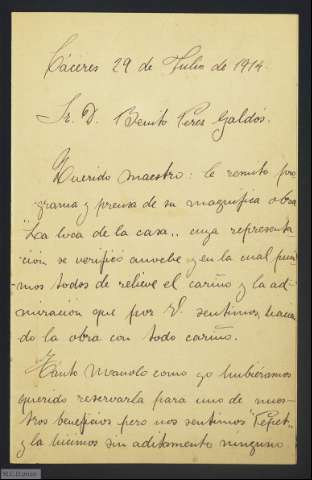 Cáceres 29 de Julio de 1914.
Sr. D. Benito Perez Galdós.
Querido maestro: le remito pro
grama y prensa de su magnifica obra
"La loca de la casa„ cuya representa
ción se verificó anoche y en la cual pusi
mos todos de relieve el cariño y la ad-
miración que por V. sentimos, hacien
do la obra con todo cariño.
Tanto Manolo como yo hubieramos
querido reservarla para uno de nues-
tros beneficios pero nos sentimos "Pepet„
y la hicimos sin aditamento ninguno